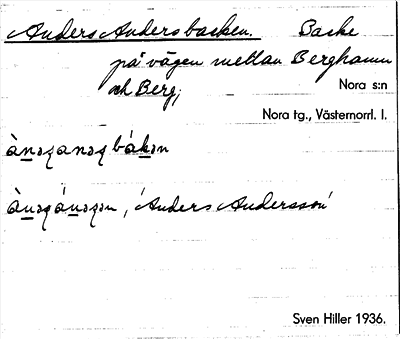 Anders Andersbacken. Backe
på vägen mellan Berghamn
och Berg;
Nora s:n
Nora tg., Västernorrl. l.
ànəʂanəʂ bákən
ànəʂánəʂən, 'Anders Andersson'
Sven Hiller 1936.